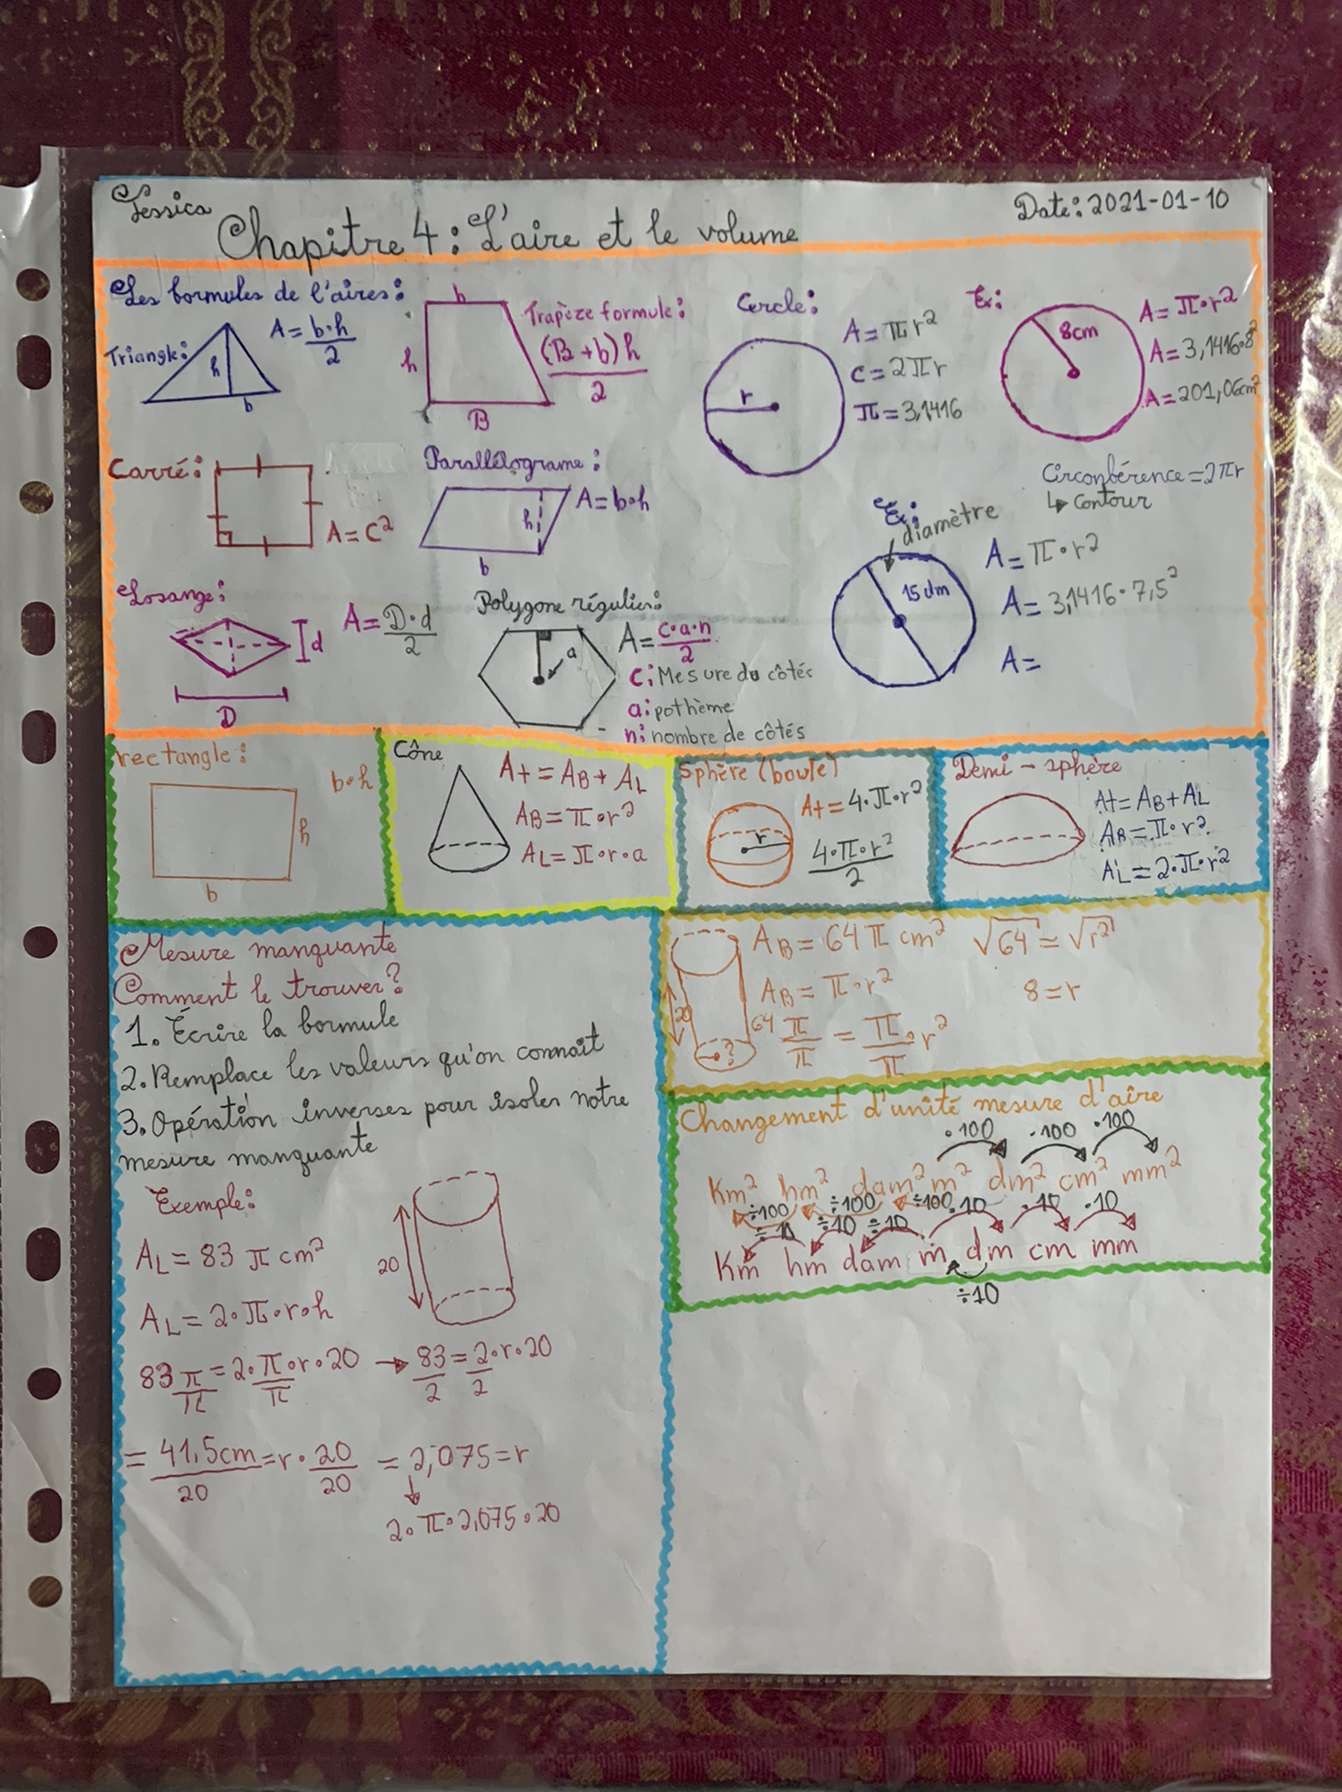 Jessica
Date: 2021-01-10
Chapitre 4: L'aire et le volume
Les formules de l'aires:
Triangle:
h
b
A = b·h/2
b
h
B
Trapèze formule:
(B+b)h/2
Cercle:
r
A = πr²
C = 2πr
π = 3,1416
Ex:
8cm
A = π·r²
A = 3,1416·8²
A = 201,06cm²
Circonférence = 2πr
↳ Contour
Carré:
A = C²
Parallélograme:
h
b
A = b·h
Ex:
diamètre
15 dm
A = π·r²
A = 3,1416·7,5²
A =
Losange:
d
D
A = D·d/2
Polygone régulier:
a
A = c·a·n/2
C: Mesure du côtés
a: pothème
n: nombre de côtés
rectangle:
b·h
h
b
Cône
At = AB + AL
AB = π·r²
AL = π·r·a
Sphère (boule)
r
At = 4·π·r²
4·π·r²/2
Demi-sphère
At = AB + AL
AB = π·r²
AL = 2·π·r²
Mesure manquante
Comment le trouver?
1. Écrire la formule
2. Remplace les valeurs qu'on connaît
3. Opération inverses pour isoler notre
mesure manquante
Exemple:
AL = 83 π cm²
AL = 2·π·r·h
20
83 π/π = 2·π/π·r·20 → 83/2 = 2/2·r·20
= 41,5cm/20 = r·20/20 = 2,075 = r
↓
2·π·2,075·20
20
?
AB = 64 π cm²
AB = π·r²
64 π/π = π/π·r²
√64 = √r²
8 = r
Changement d'unité mesure d'aire
·100 ·100 ·100
Km² hm² dam² m² dm² cm² mm²
÷100 ÷100 ÷100
÷10 ÷10 ÷10 ·10 ·10 ·10
Km hm dam m dm cm mm
÷10